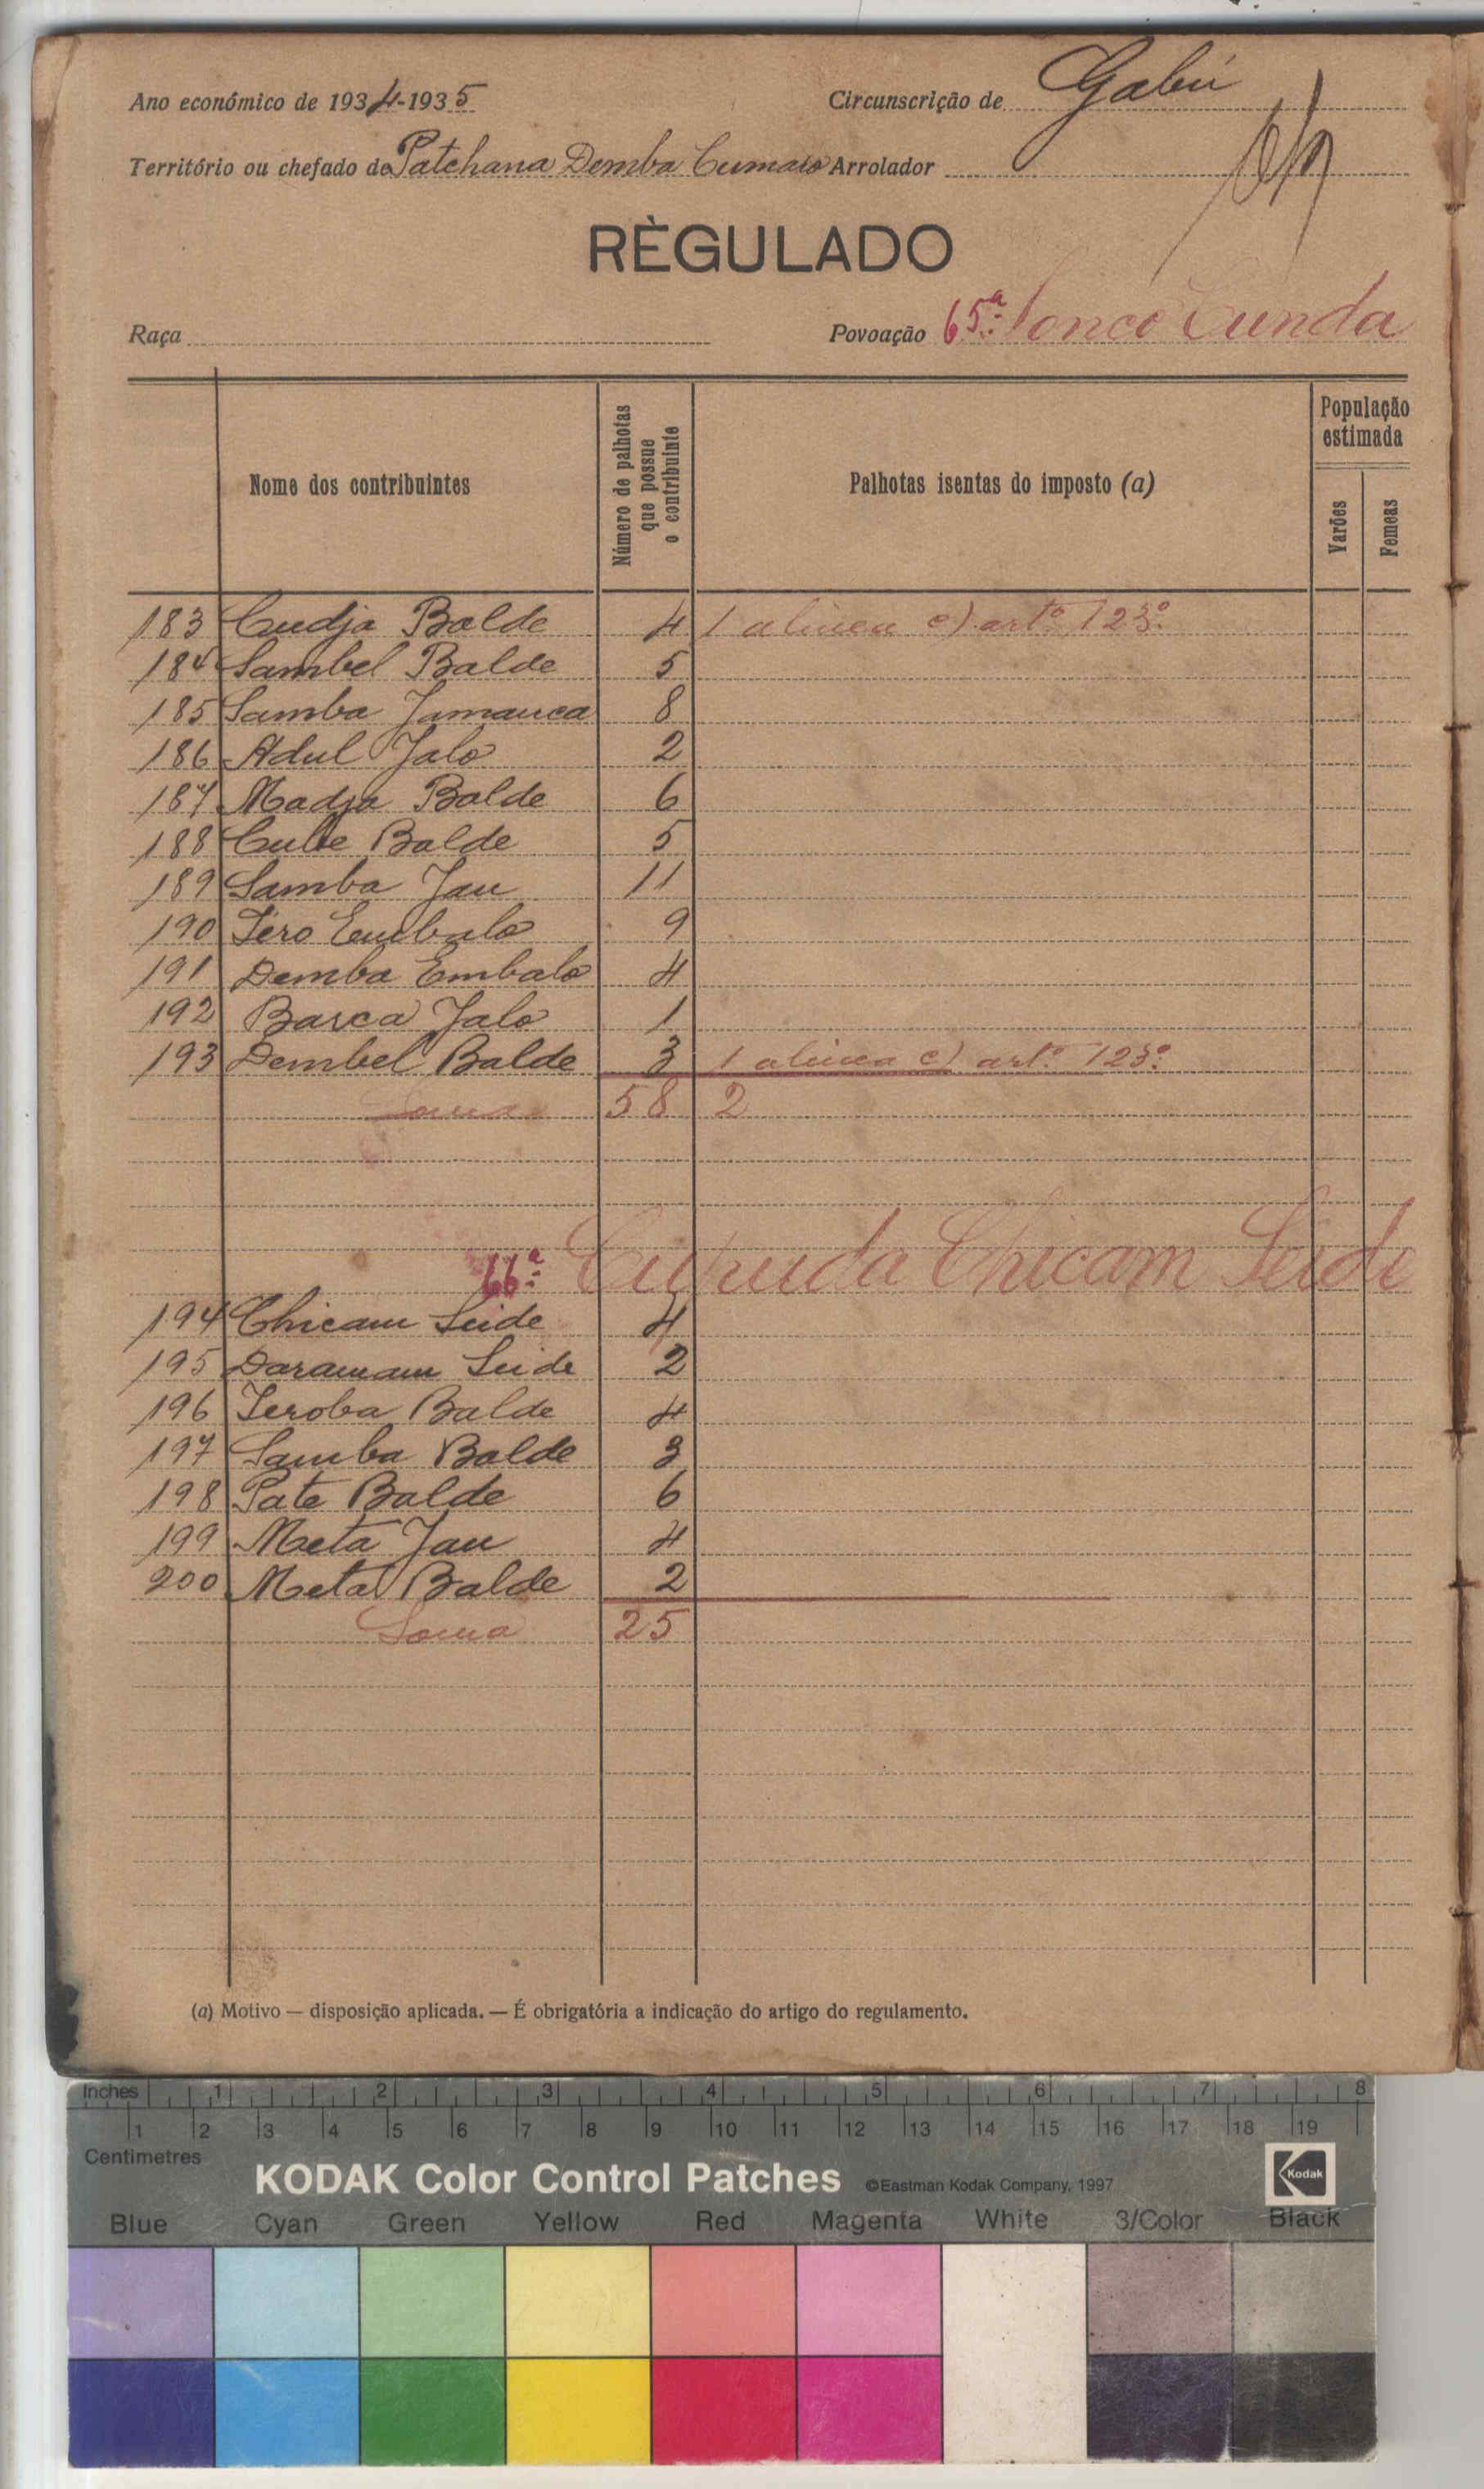 Ano económico de 1934-1935 Circunscrição de Gabú
Território ou chefado de Patchana Demba Cumaio Arrolador
RÈGULADO
Raça Povoação 65ª: Sonco Cunda
Nome dos contribuintes
Número de palhotas que possue o contribuinte
Palhotas isentas do imposto (a)
População estimada
Varões
Femeas
183 Cudja Balde 4 1 alinea c) artº 123º
184 Sambel Balde 5
185 Samba Jamanca 8
186 Adul Jalo 2
187 Madja Balde 6
188 Balde 5
189 Samba Jau 11
190 Sero Embalo 9
191 Demba Embalo 4
192 Barca Jalo 1
193 Dembel Balde 3 1 alinea c) artº 123º
Soma 58 2
66ª: Chicam Seide
194 Chicam Seide 4
195 Daramam Seide 2
196 Seroba Balde 4
197 Samba Balde 3
198 Pate Balde 6
199 Meta Jau 4
200 Meta Balde 2
Soma 25
(a) Motivo — disposição aplicada. — É obrigatória a indicação do artigo do regulamento.
Inches 1 2 3 4 5 6 7 8
1 2 3 4 5 6 7 8 9 10 11 12 13 14 15 16 17 18 19
Centimetres
KODAK Color Control Patches ©Eastman Kodak Company, 1997 Kodak
Blue Cyan Green Yellow Red Magenta White 3/Color Black